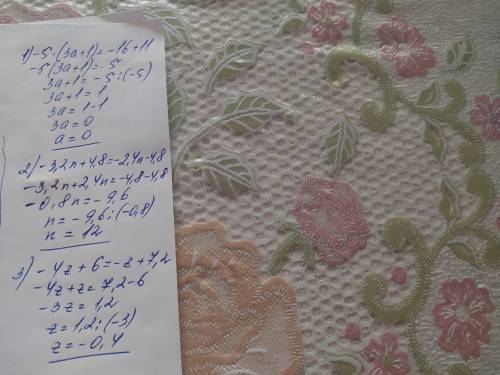 1) -5·(3a+1)=-16+11
-5(3a+1)=-5
3a+1=-5:(-5)
3a+1=1
3a=1-1
3a=0
a=0
2) -3,2n+4,8=-2,4n-4,8
-3,2n+2,4n=-4,8-4,8
-0,8n=-9,6
n=-9,6:(-0,8)
n=12
3) -4z+6=-z+7,2
-4z+z=7,2-6
-3z=1,2
z=1,2:(-3)
z=-0,4